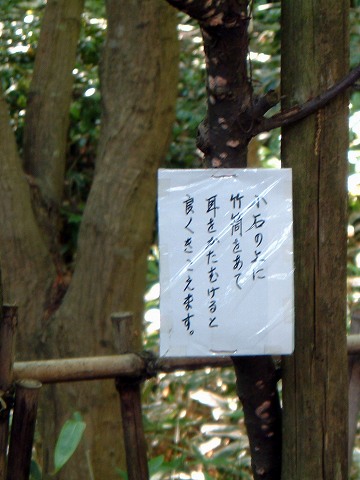 小石の上に
竹筒をあて
耳をかたむけると
良くきこえます。